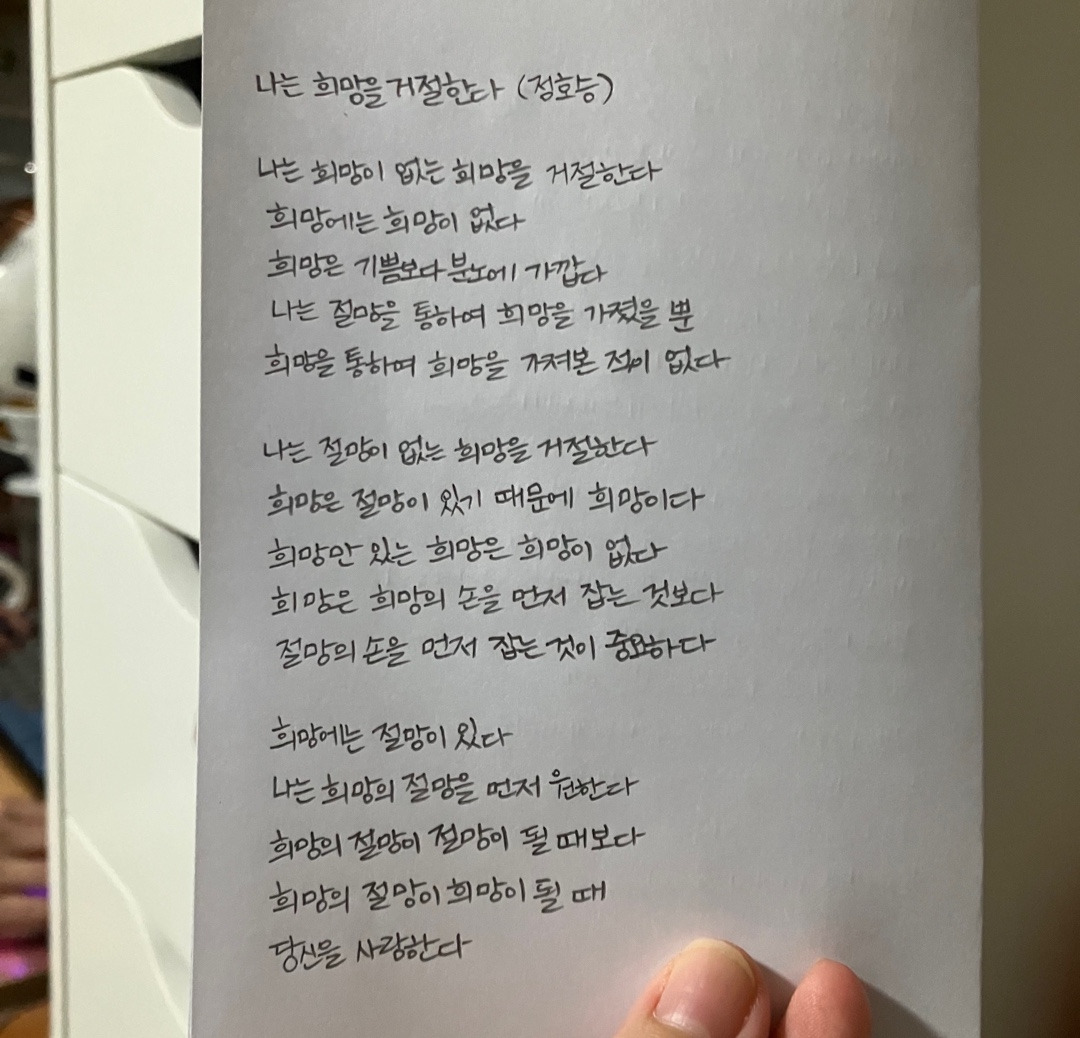 나는 희망을 거절한다 (정호승)
나는 희망이 없는 희망을 거절한다
희망에는 희망이 없다
희망은 기쁨보다 분노에 가깝다
나는 절망을 통하여 희망을 가졌을 뿐
희망을 통하여 희망을 가져본 적이 없다
나는 절망이 없는 희망을 거절한다
희망은 절망이 있기 때문에 희망이다
희망만 있는 희망은 희망이 없다
희망은 희망의 손을 먼저 잡는 것보다
절망의 손을 먼저 잡는 것이 중요하다
희망에는 절망이 있다
나는 희망의 절망을 먼저 원한다
희망의 절망이 절망이 될 때보다
희망의 절망이 희망이 될 때
당신을 사랑한다